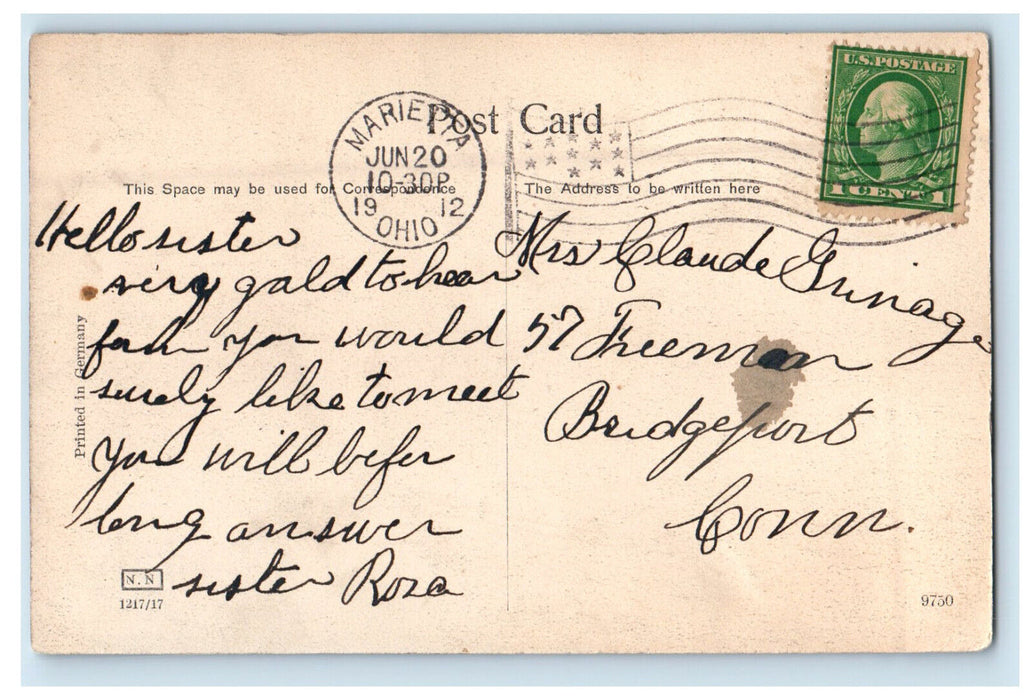 U.S. POSTAGE
1 CENT 1
MARIETTA
JUN 20
10-30P
19 12
OHIO
Post Card
This Space may be used for Correspondence
The Address to be written here
Hello sister
very gald to hear
from you would
surely like to meet
you will befor
long answer
sister Rosa
Mrs Claude Grinage
57 Freeman
Bridgeport
Conn.
Printed in Germany
N. N
1217/17
9750